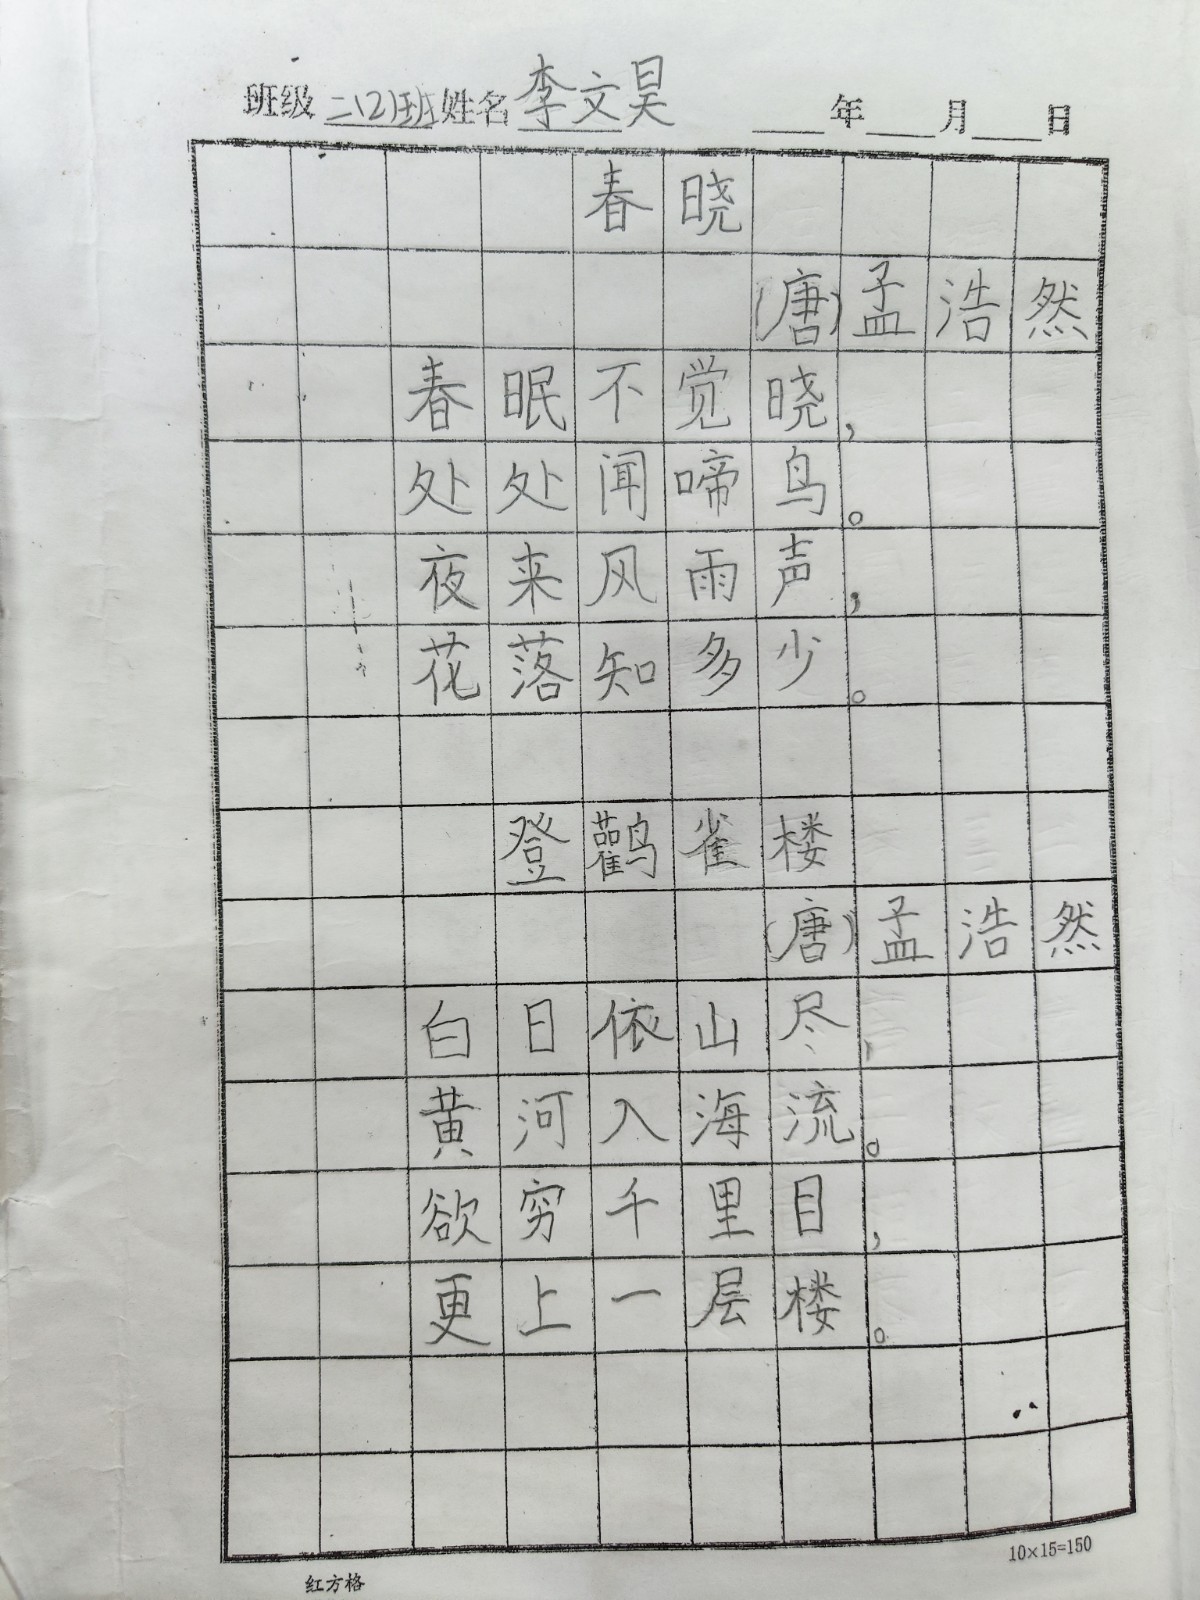 班级 二(2)班 姓名 李文昊 ____年____月____日
春晓
(唐)孟浩然
春眠不觉晓,
处处闻啼鸟。
夜来风雨声,
花落知多少。
登鹳雀楼
(唐)孟浩然
白日依山尽,
黄河入海流。
欲穷千里目,
更上一层楼。
10×15=150
红方格